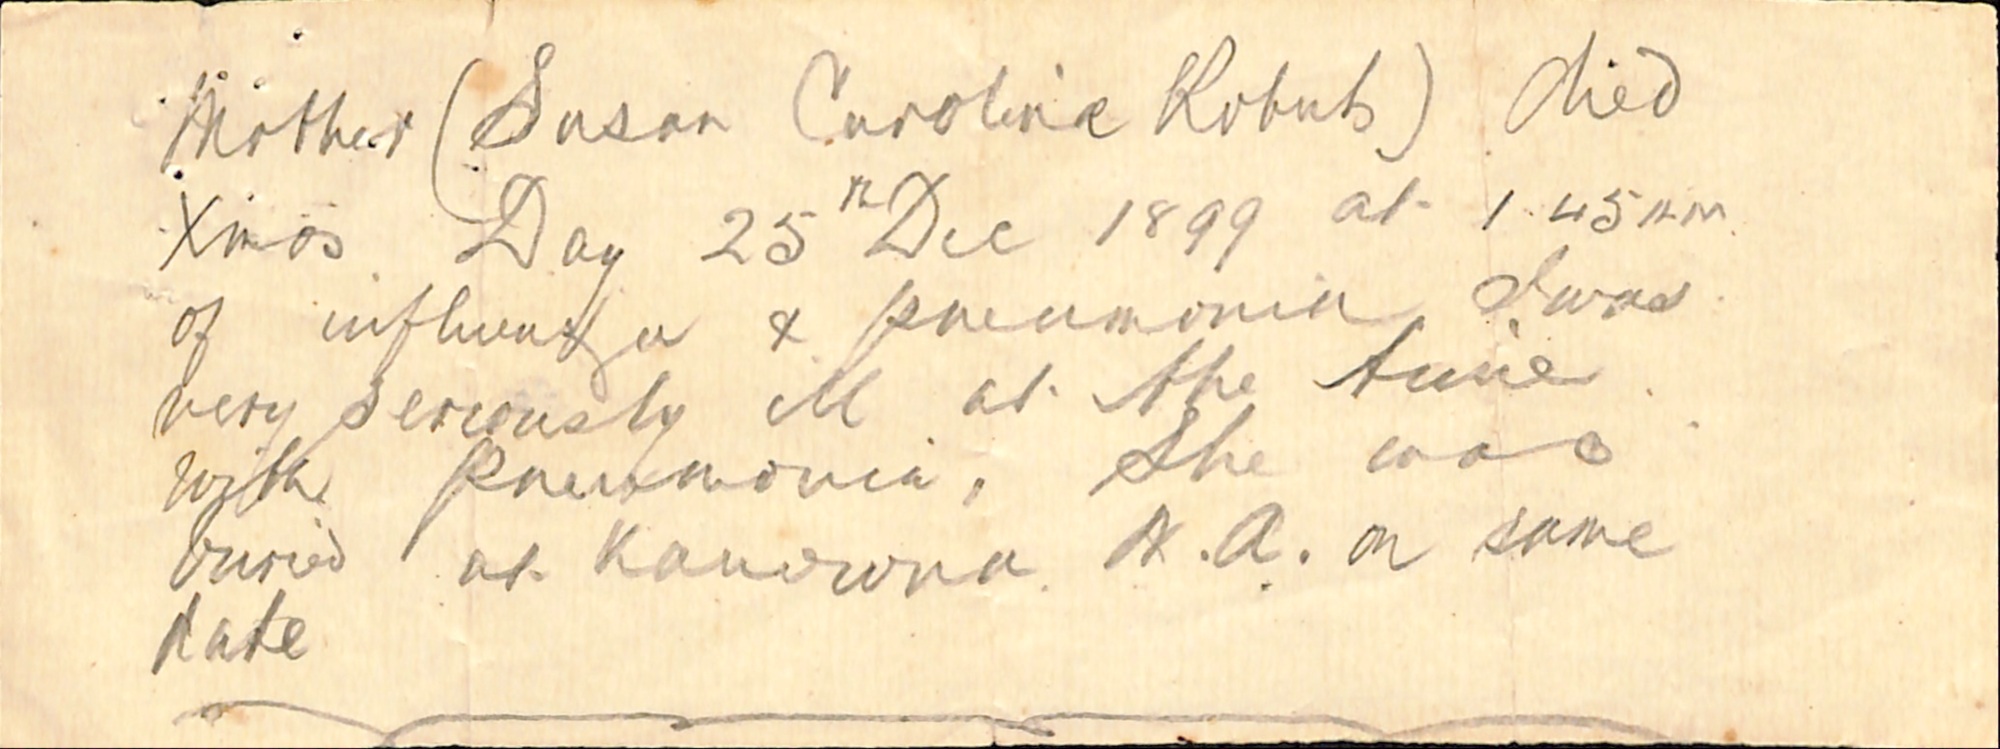 Mother (Susan Caroline Roberts) died
Xmas Day 25th Dec 1899 at 1.45 am
of influenza & pneumonia I was
very seriously ill at the time
with pneumonia, She was
buried at Kanowna W.A. on same
date